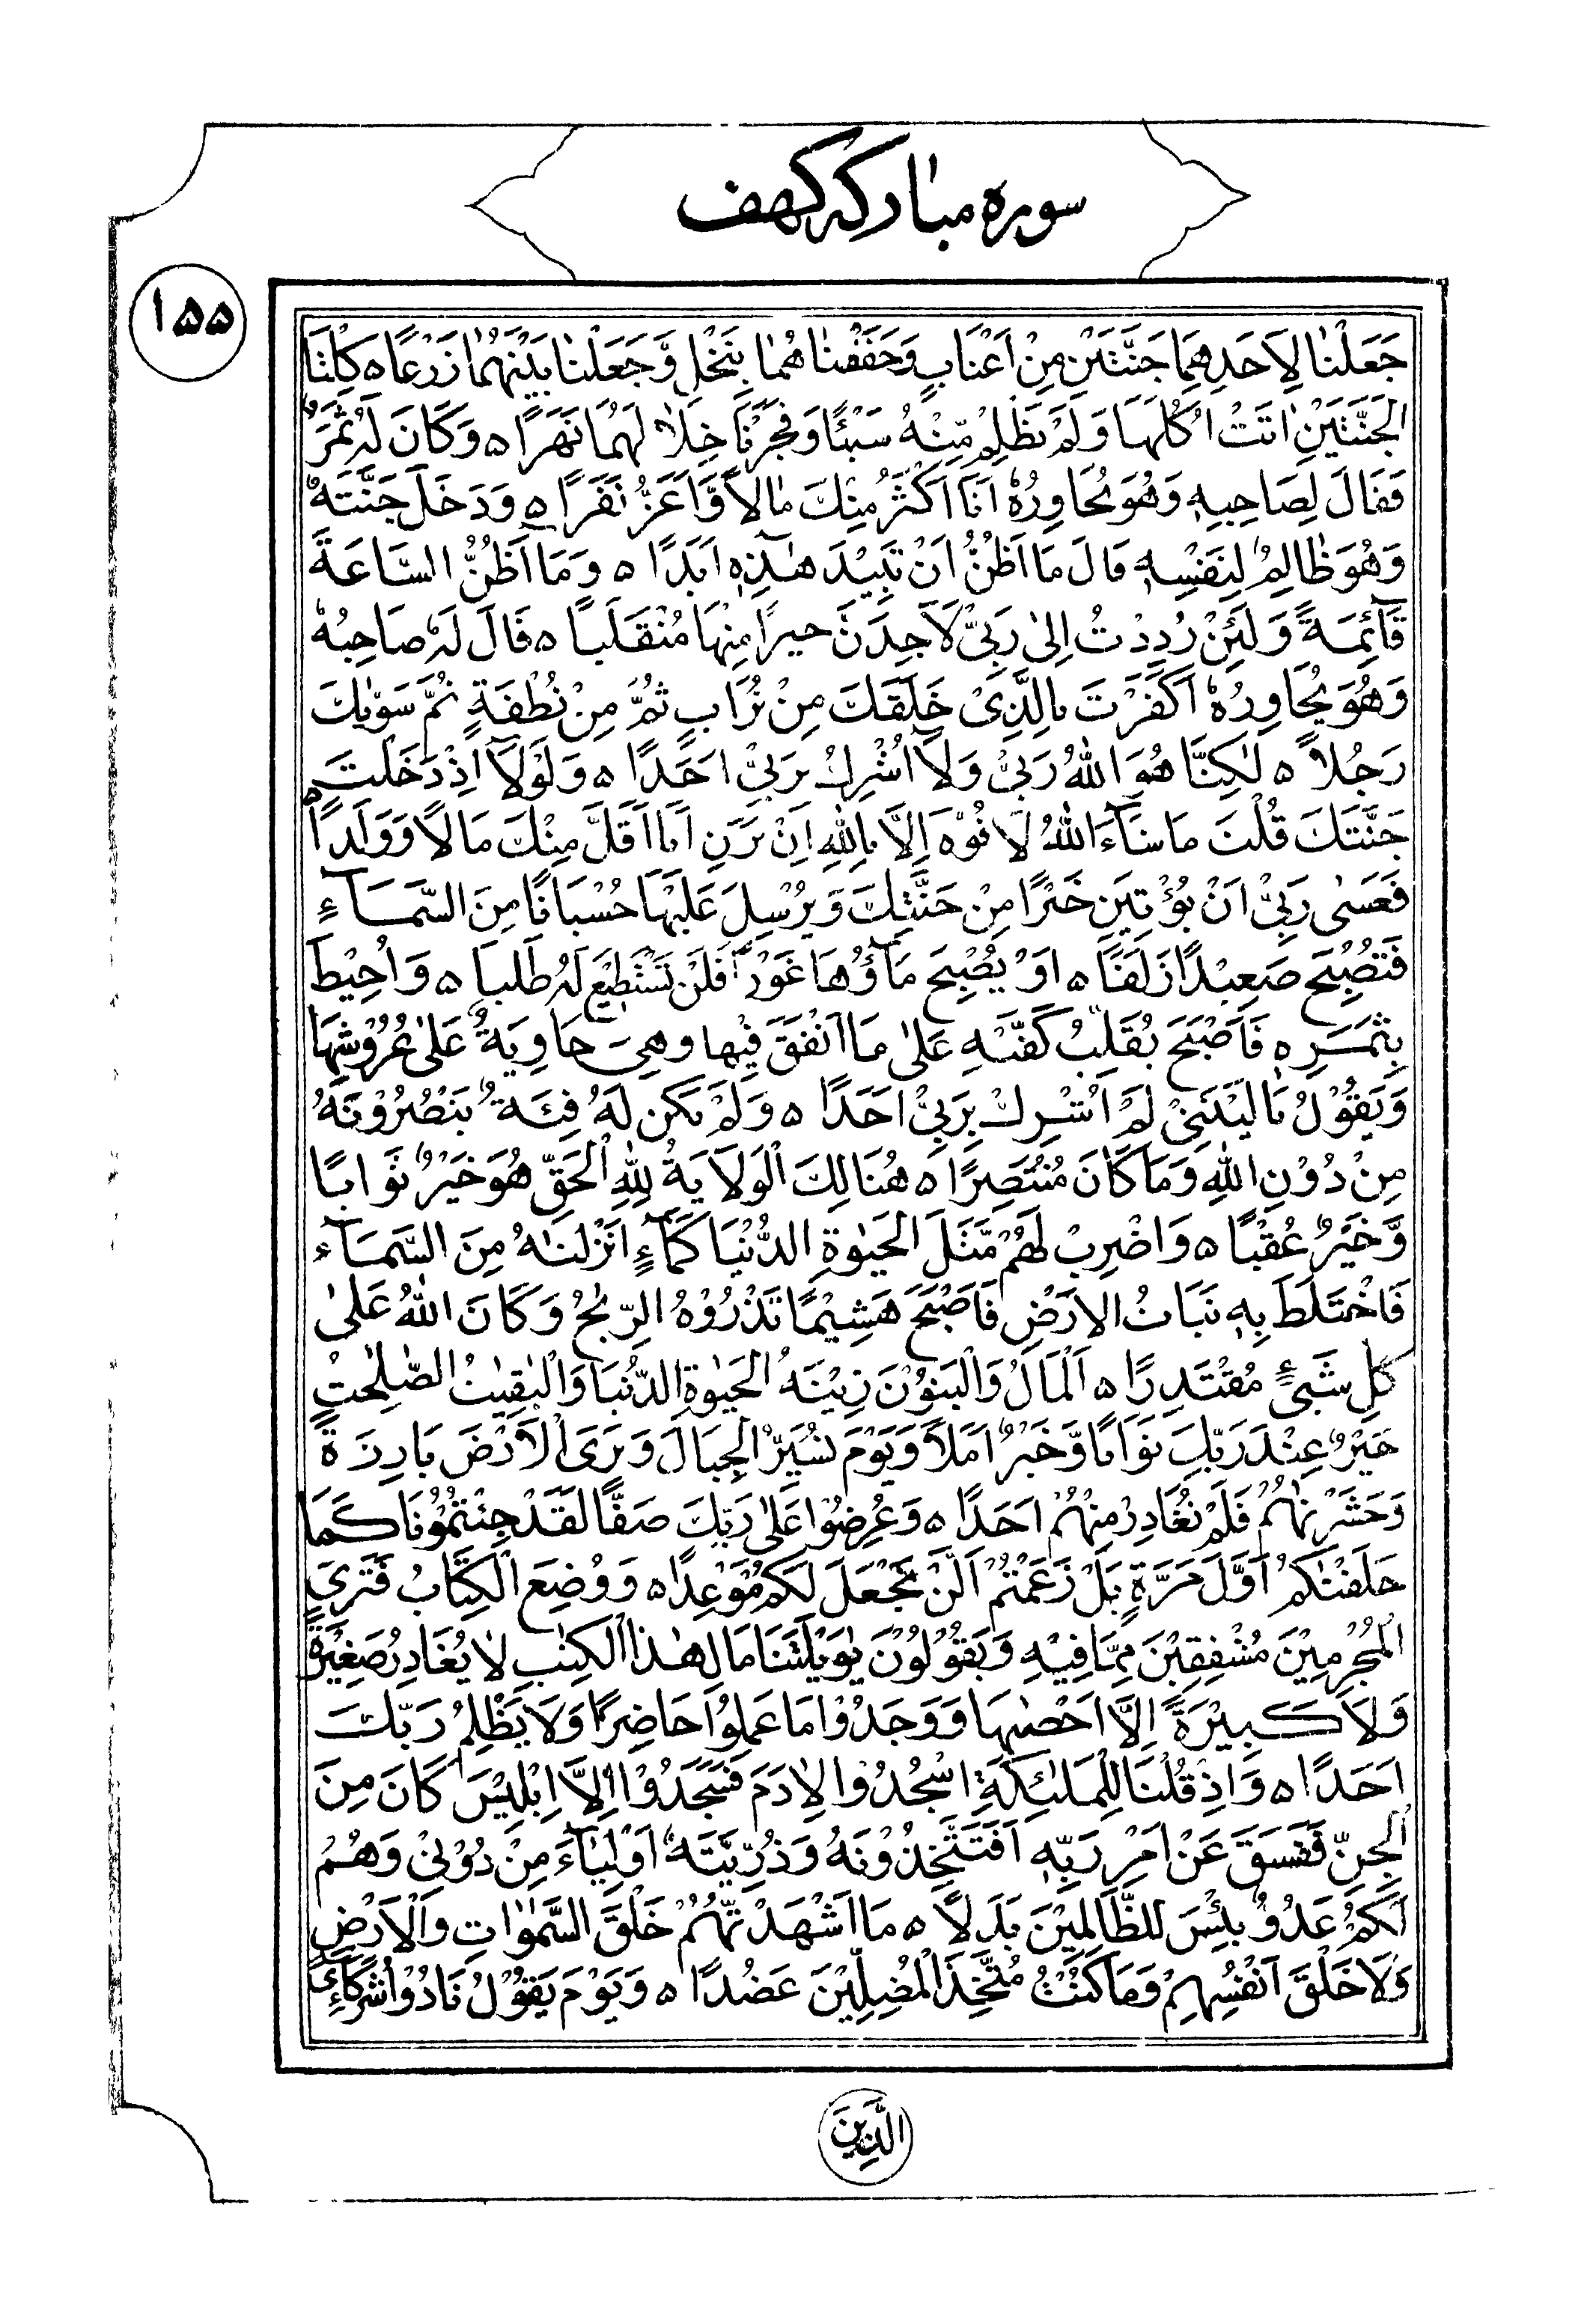 سوره مبارکه کهف
۱۵۵
جَعَلْنٰا لِاَحَدِهِمٰا جَنَّتَيْنِ مِنْ اَعْنٰابٍ وَحَفَفْنٰاهُمٰا بِنَخْلٍ وَّجَعَلْنٰا بَيْنَهُمٰا زَرْعًا ه كِلْتَا
الْجَنَّتَيْنِ اٰتَتْ اُكُلَهَا وَلَمْ تَظْلِمْ مِّنْهُ شَيْئًا وَفَجَّرْنَا خِلَالَهُمَا نَهَرًا ه وَكَانَ لَهُ ثَمَرٌ
فَقَالَ لِصَاحِبِهٖ وَهُوَ يُحَاوِرُهٗ اَنَا اَكْثَرُ مِنْكَ مٰالاً وَّاَعَزُّ نَفَرًا ه وَدَخَلَ جَنَّتَهٗ
وَهُوَ ظٰالِمٌ لِنَفْسِهٖ قَالَ مَا اَظُنُّ اَنْ تَبِيْدَ هٰذِهٖ اَبَدًا ه وَمَا اَظُنُّ السَّاعَةَ
قَآئِمَةً وَلَئِنْ رُدِدْتُ اِلىٰ رَبِّىْ لَاَجِدَنَّ خيرًا مِنْهَا مُنْقَلَبًا ه قَالَ لَهٗ صَاحِبُهٗ
وَهُوَ يُحَاوِرُهٗ اَكَفَرْتَ بِالَّذِىْ خَلَقَكَ مِنْ تُرَابٍ ثُمَّ مِنْ نُطْفَةٍ ثُمَّ سَوّٰيكَ
رَجُلاً ه لٰكِنَّا هُوَ اللهُ رَبِّىْ وَلَا اُشْرِكُ بِرَبِّىْ اَحَدًا ه وَلَوْلَا اِذْ دَخَلْتَ
جَنَّتَكَ قُلْتَ مَا شَآءَ اللهُ لَا قُوَّةَ اِلَّا بِاللهِ اِنْ تَرَنِ اَنَا اَقَلَّ مِنْكَ مَالًا وَوَلَدًا ه
فَعَسٰى رَبِّىْ اَنْ يُؤْتِيَنِ خَيْرًا مِنْ جَنَّتِكَ وَيُرْسِلَ عَلَيْهَا حُسْبَانًا مِنَ السَّمَآءِ
فَتُصْبِحَ صَعِيْدًا زَلَقًا ه اَوْ يُصْبِحَ مَآؤُهَا غَوْرًا فَلَنْ تَسْتَطِيْعَ لَهُ طَلَبًا ه وَاُحِيْطَ
بِثَمَرِهٖ فَاَصْبَحَ يُقَلِّبُ كَفَّيْهِ عَلىٰ مَا اَنْفَقَ فِيْها وهِىَ خَاوِيَةٌ عَلىٰ عُرُوْشِهَا
وَيَقُوْلُ يَا لَيْتَنِىْ لَمْ اُشْرِكْ بِرَبِّىْ اَحَدًا ه وَلَمْ تَكن لَهُ فِئَةٌ يَنْصُرُوْنَهُ
مِنْ دُوْنِ اللهِ وَمَا كَانَ مُنْتَصِرًا ه هُنَالِكَ الْوَلَايَةُ لِلّٰهِ الْحَقِّ هُوَ خَيْرٌ ثَوَابًا
وَّخَيْرٌ عُقْبًا ه وَاضْرِبْ لَهُمْ مَّثَلَ الْحَيٰوةِ الدُّنْيَا كَمَآءٍ اَنْزَلْنٰاهُ مِنَ السَّمَآءِ
فَاخْتَلَطَ بِهٖ نَبَاتُ الارْضِ فَاَصْبَحَ هَشِيْمًا تَذْرُوْهُ الرِّيٰحُ وَكَانَ اللهُ عَلىٰ
كلِّ شَىْءٍ مُقْتَدِرًا ه اَلْمَالُ وَالْبَنُوْنَ زِيْنَةُ الْحَيٰوةِ الدُّنْيَا وَالْبٰقِيٰتُ الصّٰلِحٰتُ
خَيْرٌ عِنْدَ رَبِّكَ ثَوَابًا وَّخَيْرٌ اَمَلاً وَيَوْمَ نُسَيِّرُ الْجِبَالَ وَتَرَى الْاَرْضَ بَارِزَةً
وَحَشَرْنٰهُمْ فَلَمْ نُغَادِرْ مِنْهُمْ اَحَدًا ه وَعُرِضُوْا عَلىٰ رَبِّكَ صَفًّا لَقَدْ جِئْتُمُوْنَا كَمَا
خَلَقْنٰكُمْ اَوَّلَ مَرَّةٍ بَلْ زَعَمْتُمْ اَلَّنْ نَجْعَلَ لَكُمْ مَوْعِدًا ه وَوُضِعَ الْكِتَابُ فَتَرَى
الْمُجْرِمِيْنَ مُشْفِقِيْنَ مِمَّا فِيْهِ وَيَقُوْلُوْنَ يٰوَيْلَتَنَا مَالِ هٰذَا الْكِتٰبِ لَا يُغَادِرُ صَغِيْرَةً
وَلَا كَبِيْرَةً اِلَّا اَحْصٰهَا وَوَجَدُوْا مَا عَمِلُوا حَاضِرًا وَلَا يَظْلِمُ رَبُّكَ
اَحَدًا ه وَاِذْ قُلْنَا لِلْمَلٰئِكَةِ اسْجُدُوا لِاٰدَمَ فَسَجَدُوْا اِلَّا اِبْلِيْسَ كَانَ مِنَ
الْجِنِّ فَفَسَقَ عَنْ اَمْرِ رَبِّهٖ اَفَتَتَّخِذُوْنَهُ وَذُرِّيَّتَهٗ اَوْلِيٰآءَ مِنْ دُوْنِىْ وَهُمْ
لَكُمْ عَدُوٌّ بِئْسَ للظَّالِمِيْنَ بَدَلًا ه مَا اَشْهَدْتُّهُمْ خَلْقَ السَّمٰوَاتِ وَالْاَرْضِ
وَلَا خَلْقَ اَنْفُسِهِمْ وَمَا كُنْتُ مُتَّخِذَ الْمُضِلِّيْنَ عَضُدًا ه وَيَوْمَ يَقُوْلُ نَادُوْا شُرَكَآءِىَ
الَّذِيْنَ